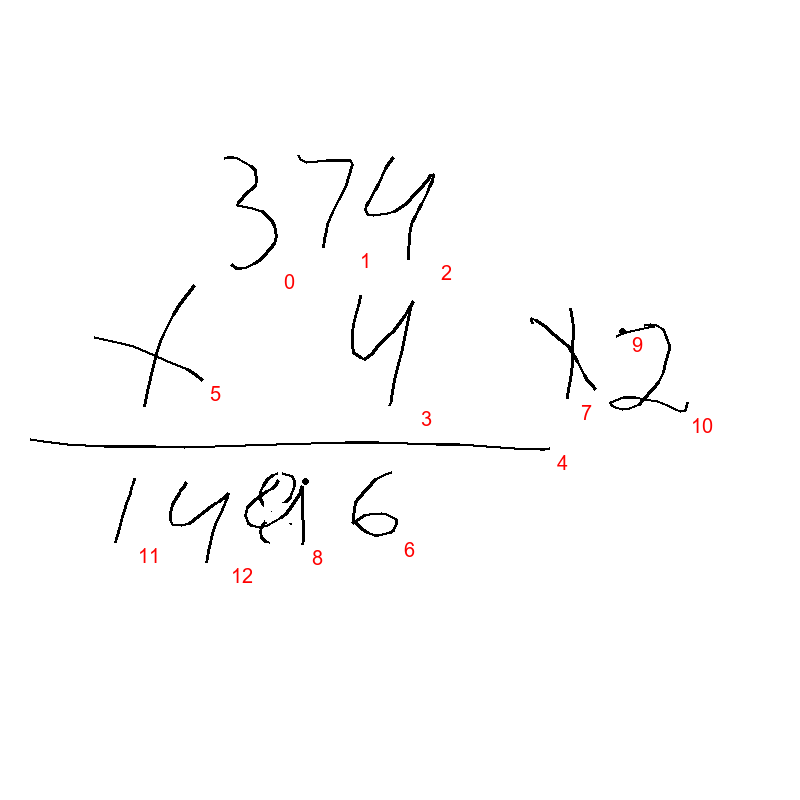 374
0 1 2
× 4 × 2
9
5 3 7 10
4
14 6
11 12 8 6